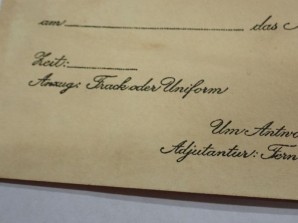 am das
Zeit:
Anzug: Frack oder Uniform
Um Antwo
Adjutantur: Forn